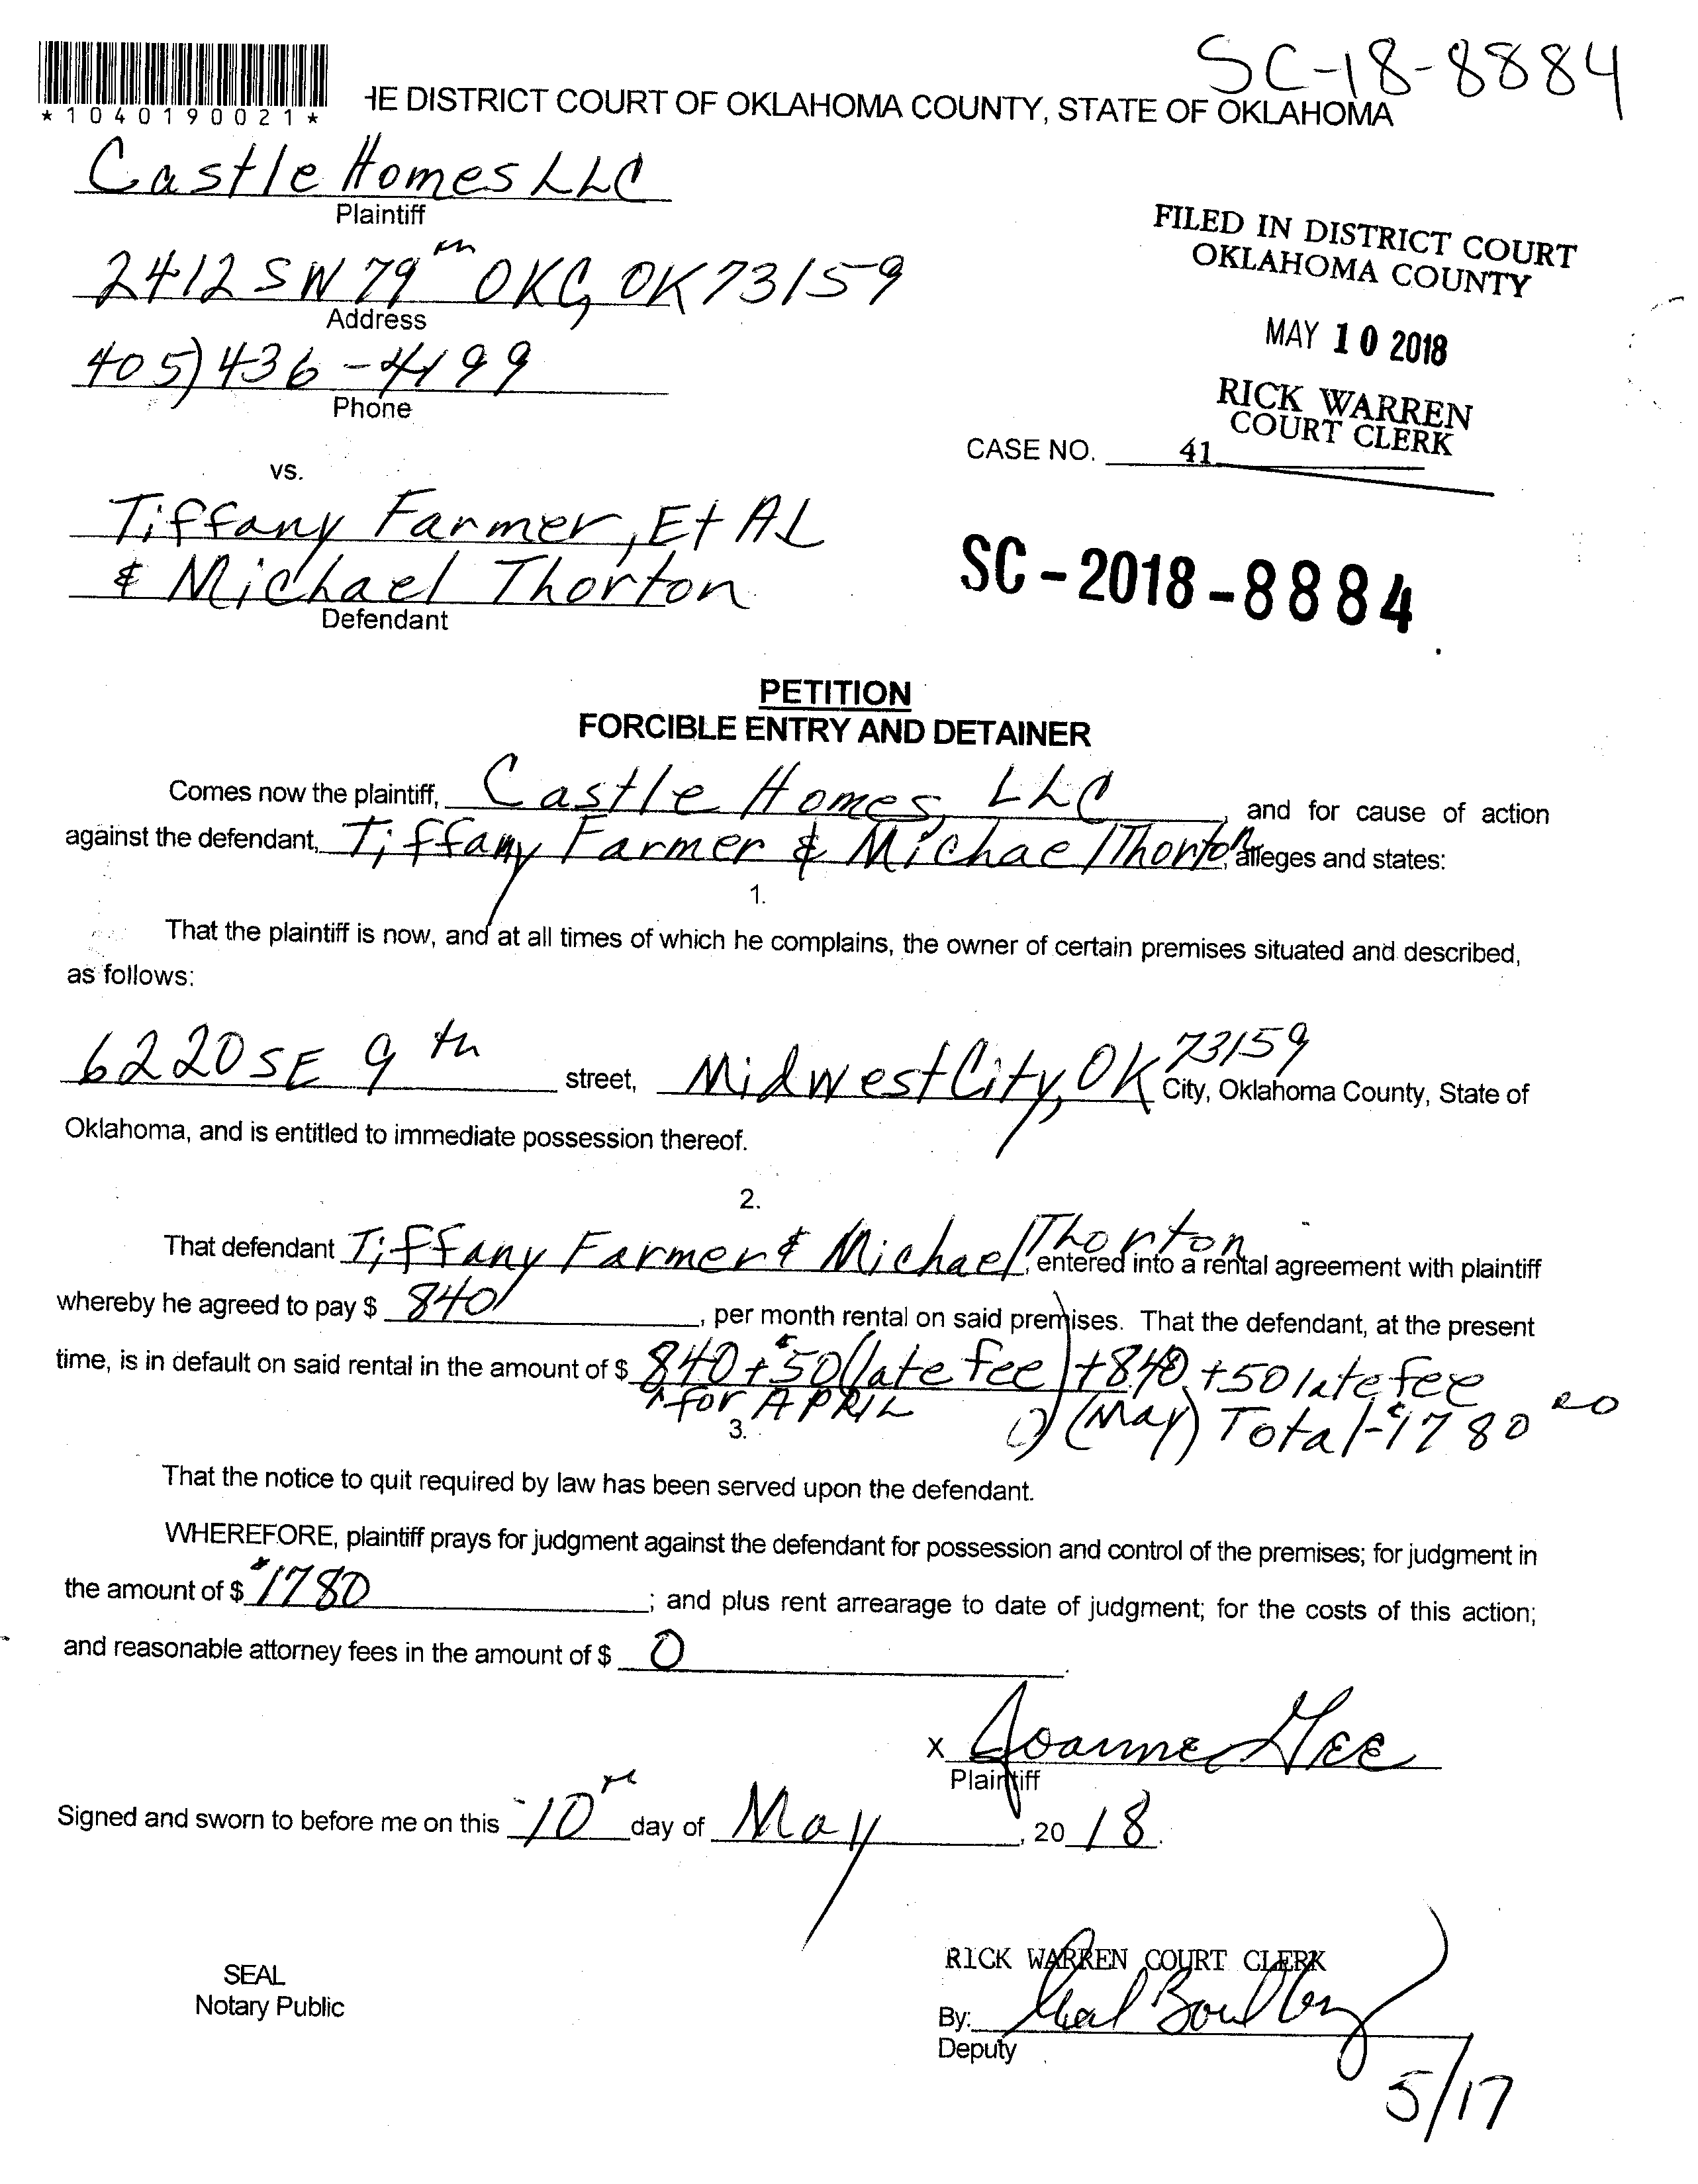 SC-18-8884
*1040190021*
HE DISTRICT COURT OF OKLAHOMA COUNTY, STATE OF OKLAHOMA
Castle Homes LLC
Plaintiff
2412 SW 79th OKC, OK 73159
Address
405) 436-4199
Phone
FILED IN DISTRICT COURT
OKLAHOMA COUNTY
MAY 10 2018
RICK WARREN
COURT CLERK
CASE NO. 41
vs.
Tiffany Farmer, Et AL
& Michael Thorton
Defendant
SC-2018-8884
PETITION
FORCIBLE ENTRY AND DETAINER
Comes now the plaintiff, Castle Homes, LLC, and for cause of action
against the defendant, Tiffany Farmer & Michael Thorton, alleges and states:
1.
That the plaintiff is now, and at all times of which he complains, the owner of certain premises situated and described,
as follows:
6220 SE 9th street, Midwest City, OK 73159 City, Oklahoma County, State of
Oklahoma, and is entitled to immediate possession thereof.
2.
That defendant Tiffany Farmer & Michael Thorton, entered into a rental agreement with plaintiff
whereby he agreed to pay $ 840, per month rental on said premises. That the defendant, at the present
time, is in default on said rental in the amount of $ 840 + $50 (late fee) + 840 + 50 late fee
^ for APRIL (May) Total-$1780 00
3.
That the notice to quit required by law has been served upon the defendant.
WHEREFORE, plaintiff prays for judgment against the defendant for possession and control of the premises; for judgment in
the amount of $ $1780; and plus rent arrearage to date of judgment; for the costs of this action;
and reasonable attorney fees in the amount of $ 0
x Joanne Gee
Plaintiff
Signed and sworn to before me on this 10 day of May, 2018.
SEAL
Notary Public
RICK WARREN COURT CLERK
By:
Deputy
5/17